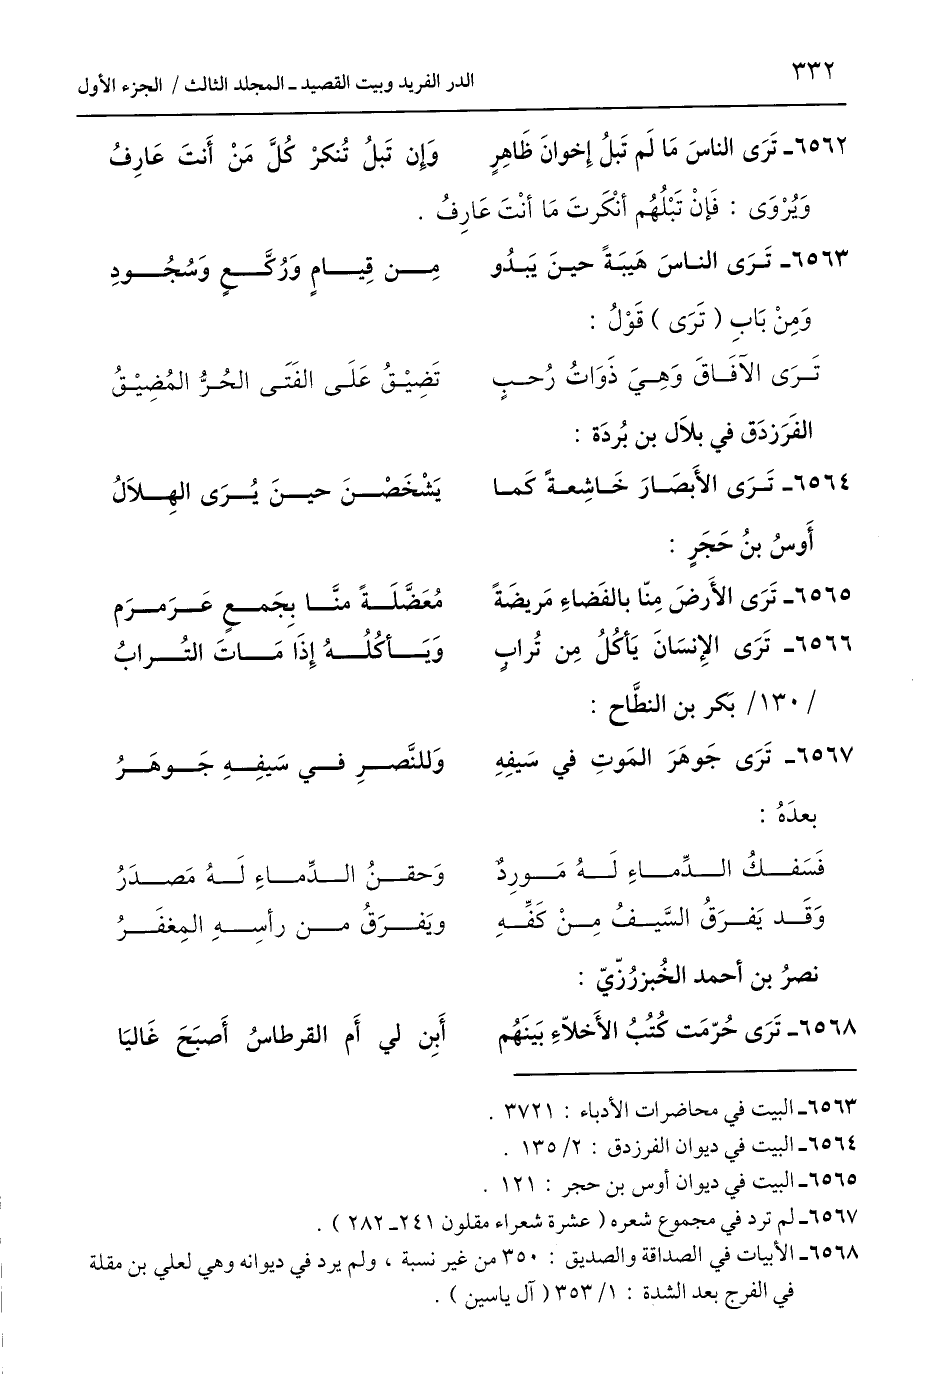 ٣٣٢ الدر الفريد وبيت القصيد ـ المجلد الثالث / الجزء الأول
٦٥٦٢ـ تَرَى الناسَ مَا لَم تَبلُ إخوانَ ظَاهِرٍ وَإن تَبلُ تُنكرْ كُلَّ مَنْ أَنتَ عَارِفُ
وَيُرْوَى : فَإنْ تَبْلُهُم أنْكَرتَ مَا أنْتَ عَارِفُ .
٦٥٦٣ـ تَرَى الناسَ هَيبَةً حينَ يَبدُو مِن قِيامٍ وَرُكَّعٍ وَسُجُودِ
وَمِنْ بَابِ ( تَرَى ) قَوْلُ :
تَرَى الآفَاقَ وَهيَ ذَوَاتُ رُحبٍ تَضِيْقُ عَلَى الفَتَى الحُرُّ المُضِيْقُ
الفَرَزدَق في بلاَل بن بُردَة :
٦٥٦٤ـ تَرَى الأبصَارَ خَاشِعةً كَما يَشْخَصْنَ حينَ يُرَى الهِلاَلُ
أَوسُ بنُ حَجَرٍ :
٦٥٦٥ـ تَرَى الأَرضَ مِنّا بالفَضاءِ مَريضَةً مُعَضَّلَةً منَّا بِجَمعٍ عَرمرَم
٦٥٦٦ـ تَرَى الإنسَانَ يَأكُلُ مِن تُرابٍ وَيَأكُلُهُ إذَا مَاتَ التُرابُ
/ ١٣٠/ بَكر بن النطَّاح :
٦٥٦٧ـ تَرَى جَوهَرَ المَوتِ في سَيفِهِ وَللنَّصرِ في سَيفِهِ جَوهَرُ
بعدَهُ :
فَسَفكُ الدِّماءِ لَهُ مَورِدٌ وَحقنُ الدِّماءِ لَهُ مَصدَرُ
وَقَد يَفرَقُ السَّيفُ مِنْ كَفِّهِ ويَفرَقُ من رأسِهِ المِغفَرُ
نصرُ بن أحمد الخُبزرُزّيّ :
٦٥٦٨ـ تَرَى حُرّمَت كُتبُ الأَخلاّءِ بَينَهُم أَبِن لي أَم القرطاسُ أَصبَحَ غَاليَا
٦٥٦٣ـ البيت في محاضرات الأدباء : ٣٧٢١ .
٦٥٦٤ـ البيت في ديوان الفرزدق : ٢/ ١٣٥ .
٦٥٦٥ـ البيت في ديوان أوس بن حجر : ١٢١ .
٦٥٦٧ـ لم ترد في مجموع شعره ( عشرة شعراء مقلون ٢٤١ـ ٢٨٢ ) .
٦٥٦٨ـ الأبيات في الصداقة والصديق : ٣٥٠ من غير نسبة ، ولم يرد في ديوانه وهي لعلي بن مقلة
في الفرج بعد الشدة : ١/ ٣٥٣ ( آل ياسين ) .